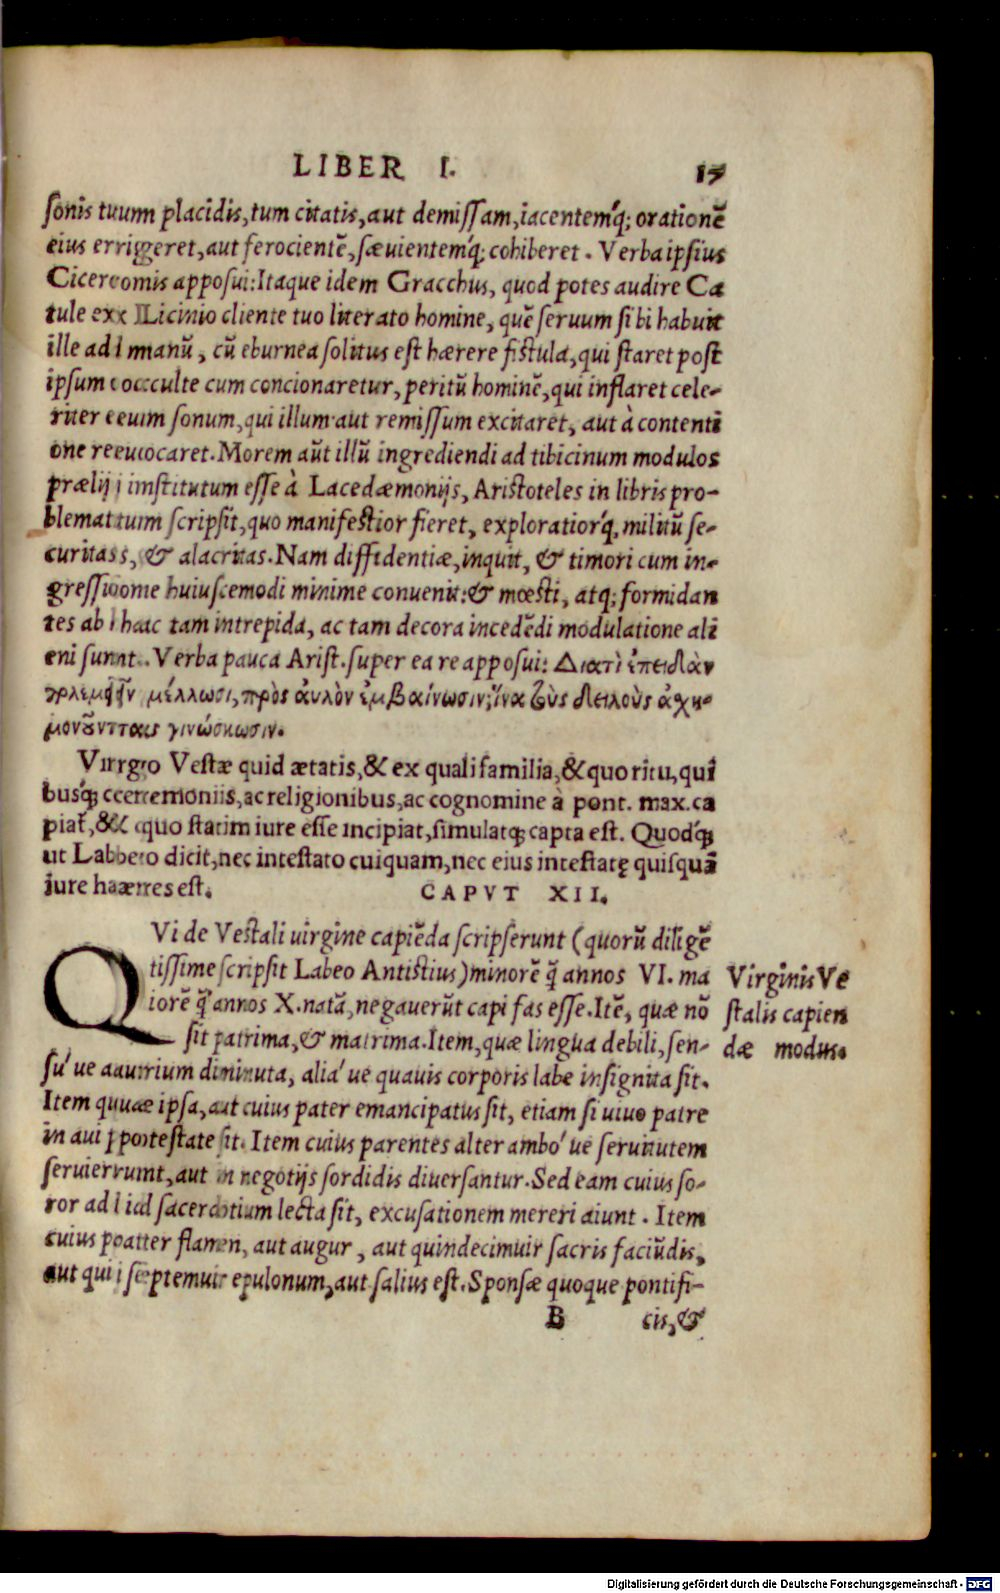 LIBER I. 17
sonis tuum placidis, tum citatis, aut demissam, iacentemq́; orationē
eius errigeret, aut ferocientē, sæuientemq́; cohiberet. Verba ipsius
Ciceronis apposui: Itaque idem Gracchus, quod potes audire Ca
tule ex Licinio cliente tuo literato homine, quē seruum sibi habuit
ille ad manū, cū eburnea solitus est hærere fistula, qui staret post
ipsum occulte cum concionaretur, peritū hominē, qui inflaret cele-
riter eum sonum, qui illum aut remissum excitaret, aut à contenti
one reuocaret. Morem aūt illū ingrediendi ad tibicinum modulos
prælij institutum esse à Lacedæmonijs, Aristoteles in libris pro-
blematum scripsit, quo manifestior fieret, exploratiorq́, militū se-
curitas, & alacritas. Nam diffidentiæ, inquit, & timori cum in-
gressione huiuscemodi minime conuenit: & mœsti, atq; formidan
tes ab hac tam intrepida, ac tam decora incedēdi modulatione ali
eni sunt. Verba pauca Arist. super ea re apposui: Διατὶ ἐπειδὰν
μέλλωσι, πρὸς ἀυλὸν ἐμβαίνωσιν; ἵνα τοὺς δειλοὺς ἀχη-
μονοῦντας γινώσκωσιν.
Virgo Vestæ quid ætatis, & ex quali familia, & quo ritu, qui
busq́; ceremoniis, ac religionibus, ac cognomine à pont. max. ca
piat̄, & quo statim iure esse incipiat, simulatq; capta est. Quodq́;
ut Labeo dicit, nec intestato cuiquam, nec eius intestatę quisquā
iure hæres est. CAPVT XII.
QVi de Vestali uirgine capiēda scripserunt (quorū diligē
tissime scripsit Labeo Antistius) minorē q̄ annos VI. ma
iorē q̄ annos X. natā, negauerūt capi fas esse. Itē, quæ nō
sit patrima, & matrima. Item, quæ lingua debili, sen-
su´ue aurium diminuta, alia´ue quauis corporis labe insignita sit.
Item quæ ipsa, aut cuius pater emancipatus sit, etiam si uiuo patre
in aui potestate sit. Item cuius parentes alter ambo´ue seruitutem
seruierunt, aut in negotijs sordidis diuersantur. Sed eam cuius so-
ror ad id sacerdotium lecta sit, excusationem mereri aiunt. Item
cuius pater flamen, aut augur, aut quindecimuir sacris faciūdis,
aut qui septemuir epulonum, aut salius est. Sponsæ quoque pontifi-
B cis, &
Virginis Ve
stalis capien
dæ modus.
Digitalisierung gefördert durch die Deutsche Forschungsgemeinschaft - DFG